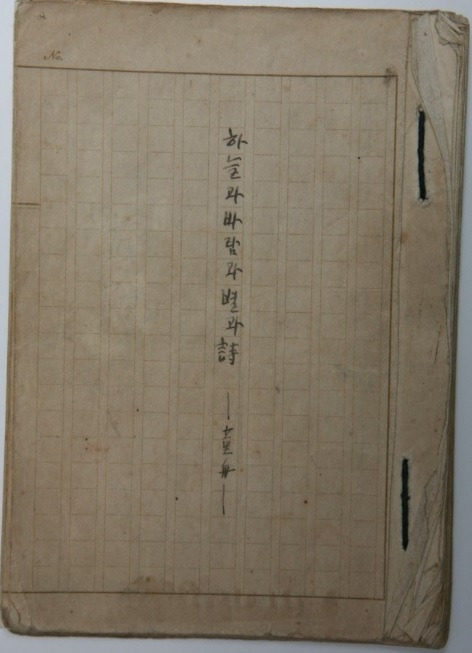 No.
하늘과바람과별과詩 ―童舟―